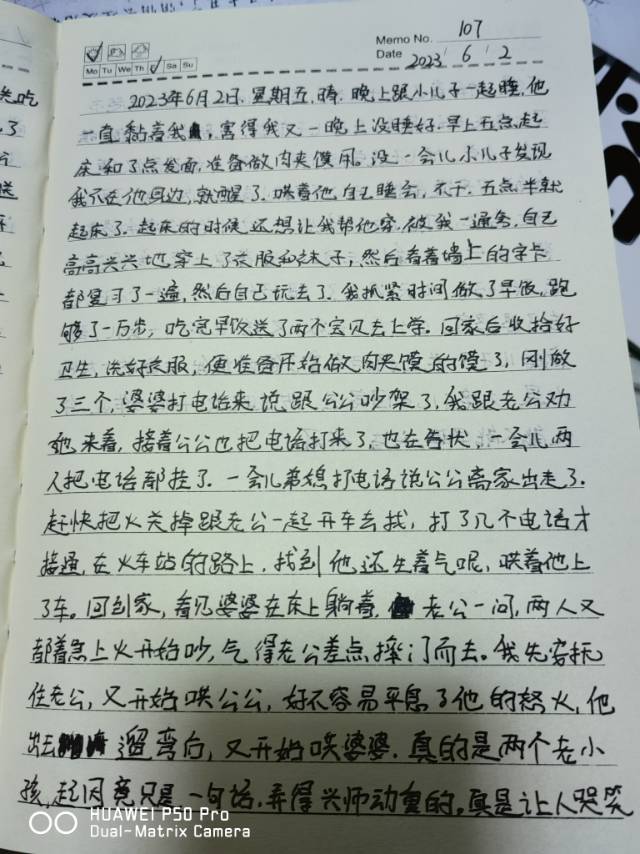 Memo No. 107
Mo Tu We Th Sa Su
Date 2023 / 6 / 2
2023年6月2日.星期五.晴.晚上跟小儿子一起睡,他
一直黏着我,害得我又一晚上没睡好.早上五点起
床和了点发面,准备做肉夹馍用.没一会儿小儿子发现
我不在他身边,就醒了.哄着他自己睡会,不干.五点半就
起床了.起床的时候还想让我帮他穿.被我一通夸,自己
高高兴兴地穿上了衣服和袜子,然后看着墙上的字卡
都复习了一遍,然后自己玩去了.我抓紧时间做了早饭,跑
够了一万步,吃完早饭送了两个宝贝去上学。回家后收拾好
卫生,洗好衣服,便准备开始做肉夹馍的馍了,刚做
了三个,婆婆打电话来说跟公公吵架了,我跟老公劝
她来着,接着公公也把电话打来了,也在告状,一会儿两
人把电话都挂了.一会儿弟媳打电话说公公离家出走了.
赶快把火关掉跟老公一起开车去找,打了几个电话才
接通,在火车站的路上,找到他还生着气呢,哄着他上
了车。回到家,看见婆婆在床上躺着,老公一问,两人又
都着急上火开始吵,气得老公差点摔门而去。我先安抚
住老公,又开始哄公公,好不容易平息了他的怒火,他
出去遛弯后,又开始哄婆婆.真的是两个老小
孩,起因竟只是一句话,弄得兴师动重的,真是让人哭笑
HUAWEI P50 Pro
Dual-Matrix Camera